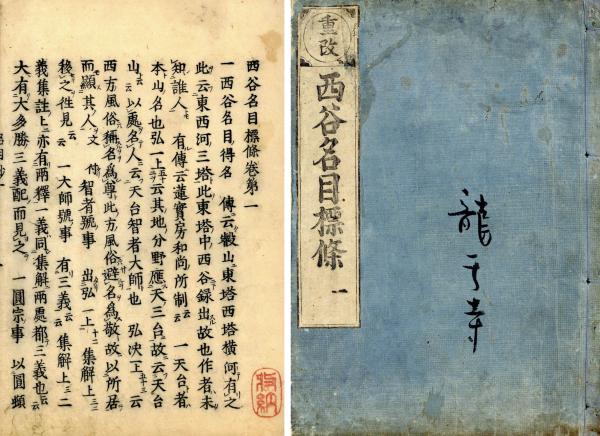 重改
西谷名目標條 一
西谷名目標條卷第一
一西谷名目得名 傳云叡山東塔西塔橫河有之
此云東西河三塔此東塔中西谷錄出故也作者未
知誰人 有傳云蓮實房和尚所制云 一天台者
本山名也弘一上云其地分野應天三台故云天台
山云 以處名人云天台智者大師也 弘決一上云
西方風俗稱名爲尊此方風俗避名爲敬故以所居
而顯其人文 付智者號事 出弘一上十二 集解上三
後之徃見云 一大師號事 有三義云 集解上二
義集註上亦有兩釋一義同集解兩處都三義也云
大有大多勝三義配而見之 一圓宗事 以圓頓